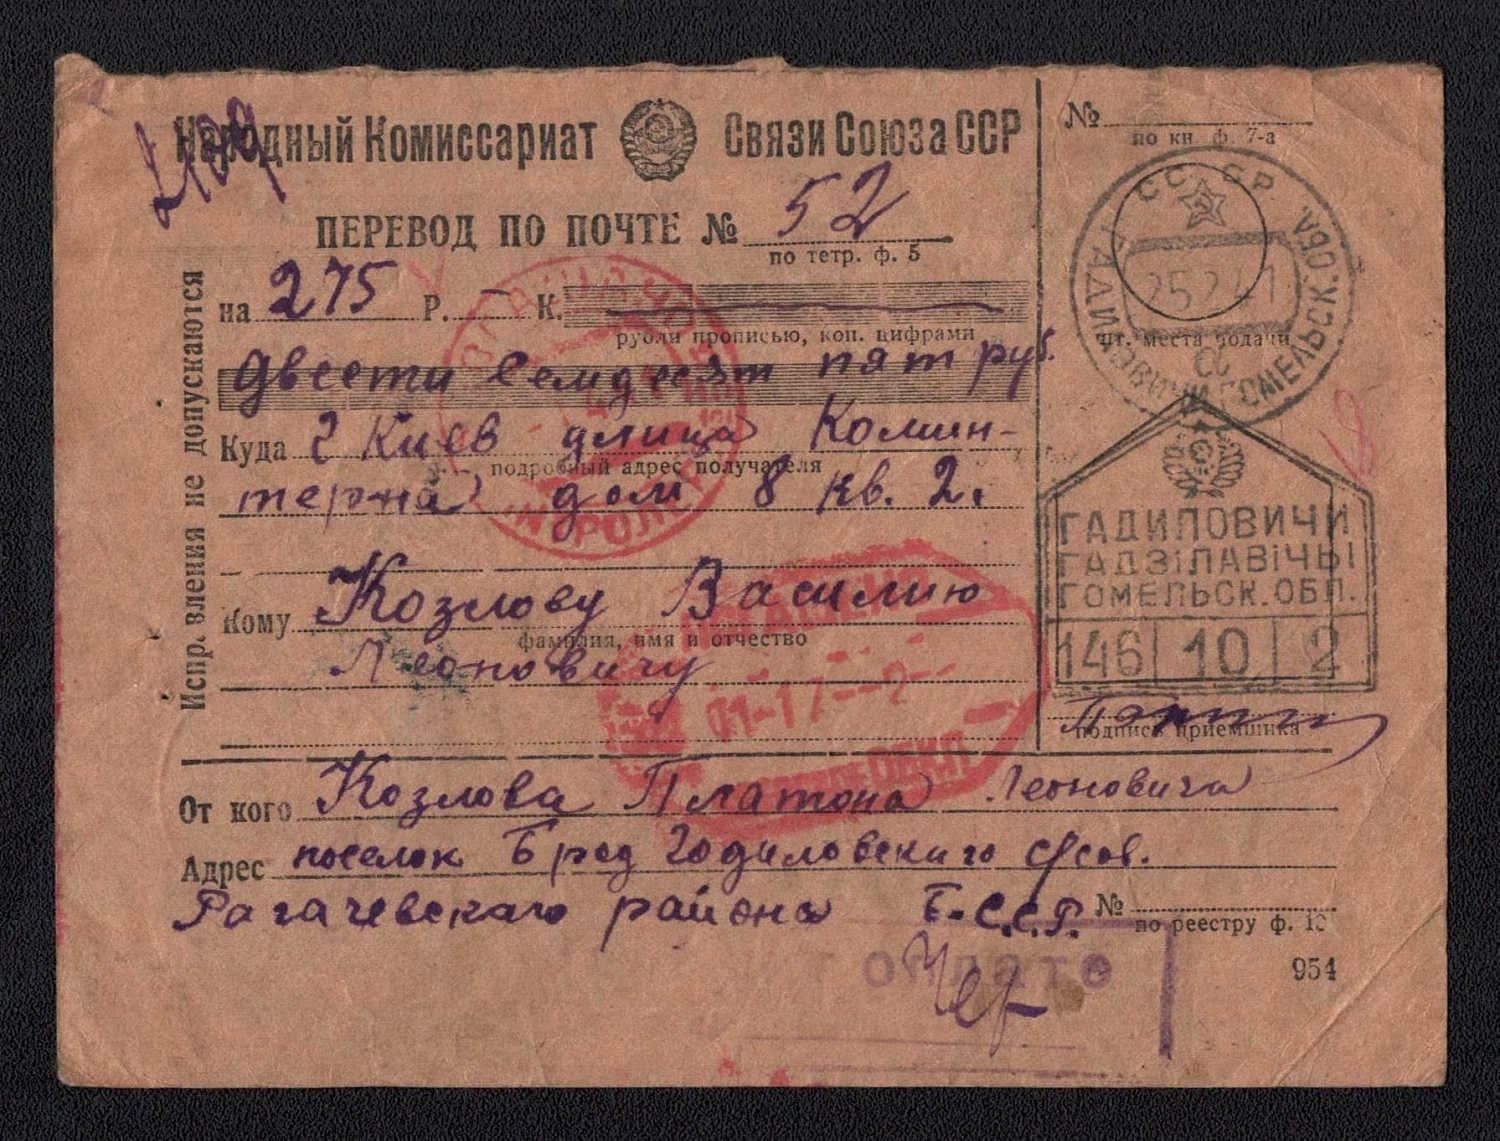 Народный Комиссариат Связи Союза ССР
ПЕРЕВОД ПО ПОЧТЕ № 52
по тетр. ф. 5
на 275 Р. – К.
рубли прописью, коп. цифрами
Двести семдесят пят руб.
Куда г Киев улица Комин-
подробный адрес получателя
терна дом 8 кв. 2.
Кому Козлову Василию
фамилия, имя и отчество
Леоновичу
От кого Козлова Платона Леоновича
Адрес поселок Брод Годиловского с/сов.
Рагачевскаго района Б.С.С.Р. №
по реестру ф. 10
954
Исправления не допускаются
№
по кн. ф. 7-а
СССР
ГАДИЛОВИЧИ ГОМЕЛЬСК. ОБЛ.
25 2 41
а
шт. места подачи
ГАДИЛОВИЧИ
ГАДЗІЛАВІЧЫ
ГОМЕЛЬСК. ОБЛ.
146 10 2
подпись приемщика
01-17--2--
оплате